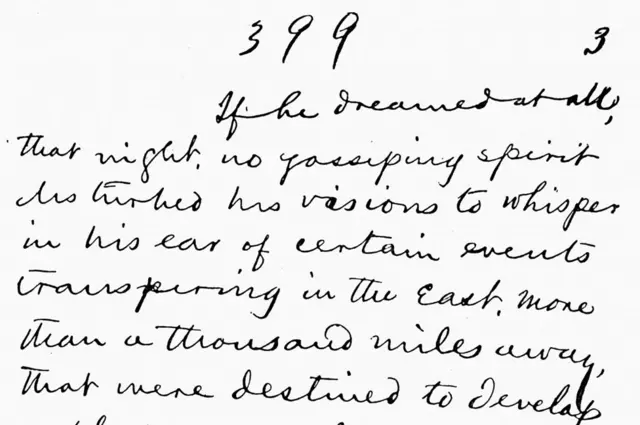 399 3
If he dreamed at all,
that night, no gossiping spirit
disturbed his visions to whisper
in his ear of certain events
transpiring in the East, more
than a thousand miles away,
that were destined to develop